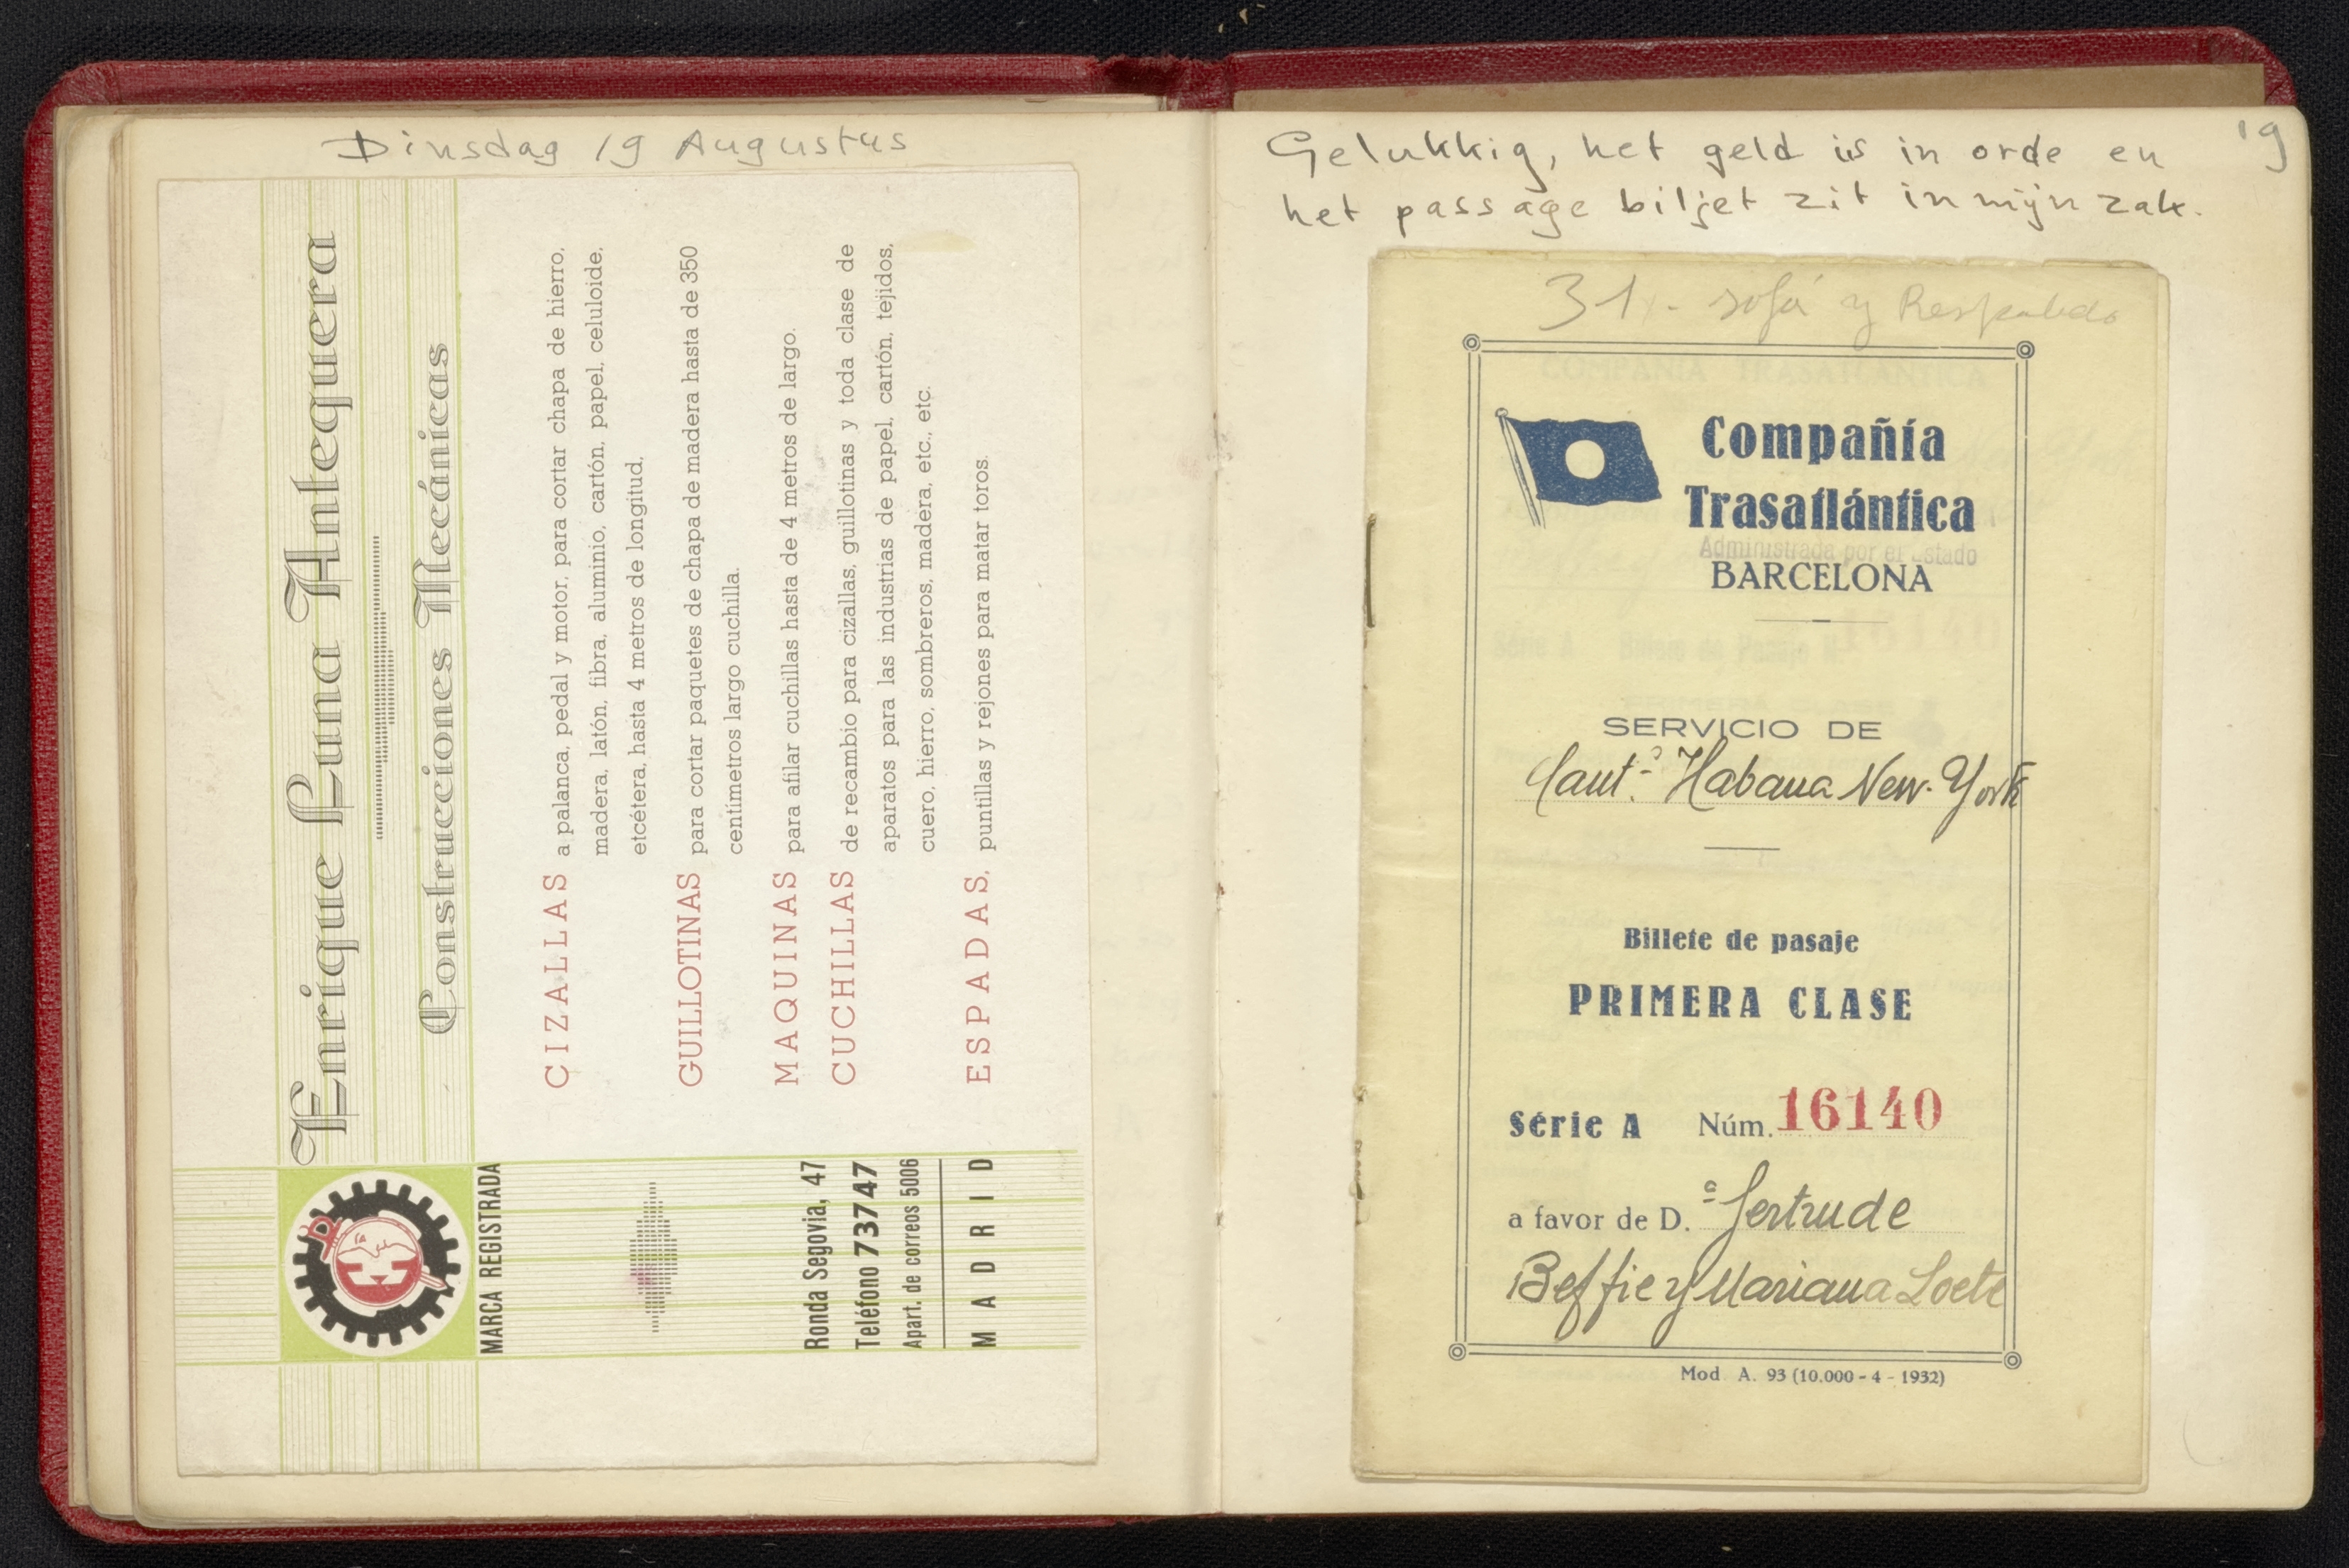 Dinsdag 19 Augustus
Enrique Luna Antequera
Construcciones Mecánicas
CIZALLAS a palanca, pedal y motor, para cortar chapa de hierro,
madera, latón, fibra, aluminio, cartón, papel, celuloide,
etcétera, hasta 4 metros de longitud.
GUILLOTINAS para cortar paquetes de chapa de madera hasta de 350
centímetros largo cuchilla.
MAQUINAS para afilar cuchillas hasta de 4 metros de largo.
CUCHILLAS de recambio para cizallas, guillotinas y toda clase de
aparatos para las industrias de papel, cartón, tejidos,
cuero, hierro, sombreros, madera, etc., etc.
ESPADAS, puntillas y rejones para matar toros.
MARCA REGISTRADA
Ronda Segovia, 47
Teléfono 73747
Apart. de correos 5006
MADRID
19
Gelukkig, het geld is in orde en
het passage biljet zit in mijn zak.
31 - sofá y Respaldo
Compañía
Trasatlántica
Administrada por el Estado
BARCELONA
SERVICIO DE
Cantº Habana New-York
Billete de pasaje
PRIMERA CLASE
Série A Núm. 16140
a favor de D.ª Gertrude
Beffie y Mariana Loeb
Mod. A. 93 (10.000 - 4 - 1932)